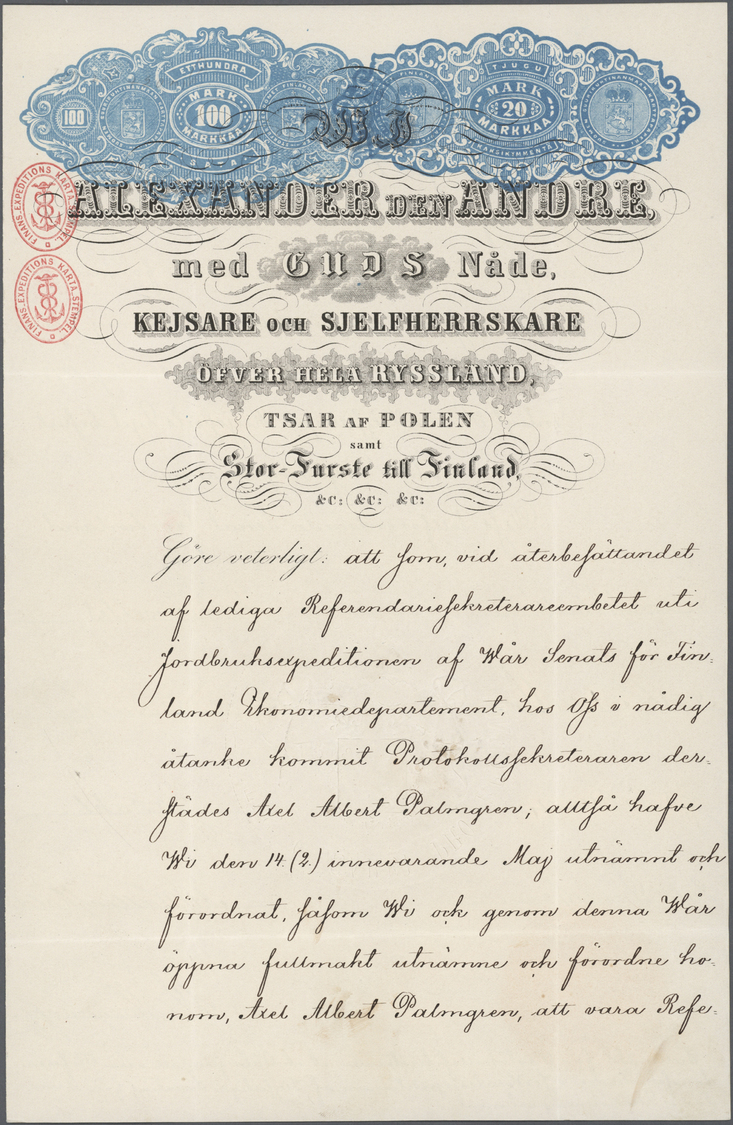 ETTHUNDRA
MARK
100 100
MARKKAA
SATA
TJUGU
MARK
20
MARKKAA
KAKSIKYMMENTÄ
WI
FINANS.EXPEDITIONS KARTA.STEMPEL
ALEXANDER DEN ANDRE,
med GUDS Nåde,
FINANS.EXPEDITIONS KARTA.STEMPEL
KEJSARE OCH SJELFHERRSKARE
ÖFVER HELA RYSSLAND,
TSAR AF POLEN
samt
Stor-Furste till Finland,
&c: &c: &c:
Göre veterligt: att som, vid återbesättandet
af lediga Referendariesekreterareembetet uti
Jordbruksexpeditionen af Wår Senats för Fin-
land Ekonomiedepartement, hos Oss i nådig
åtanke kommit Protokollssekreteraren der-
städes Axel Albert Palmgren; alltså hafve
Wi den 14.(2.) innevarande Maj utnämnt och
förordnat, såsom Wi ock genom denna Wår
öppna fullmakt utnämne och förordne ho-
nom, Axel Albert Palmgren, att vara Refe-